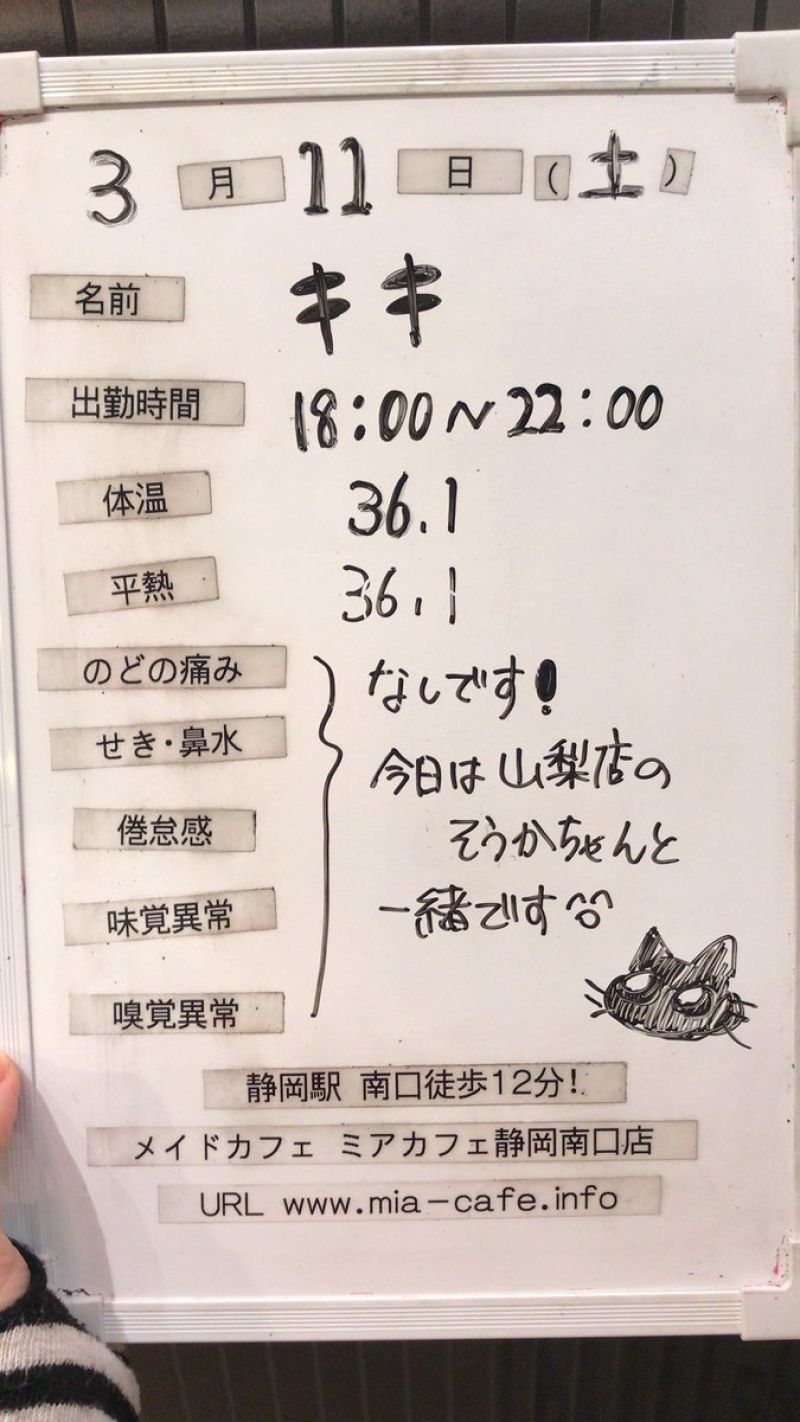 3月11日(土)
名前 キキ
出勤時間 18:00~22:00
体温 36.1
平熱 36.1
のどの痛み なしです!
せき・鼻水 今日は山梨店の
倦怠感 そうかちゃんと
味覚異常 一緒です
嗅覚異常
静岡駅 南口徒歩12分!
メイドカフェ ミアカフェ静岡南口店
URL www.mia-cafe.info